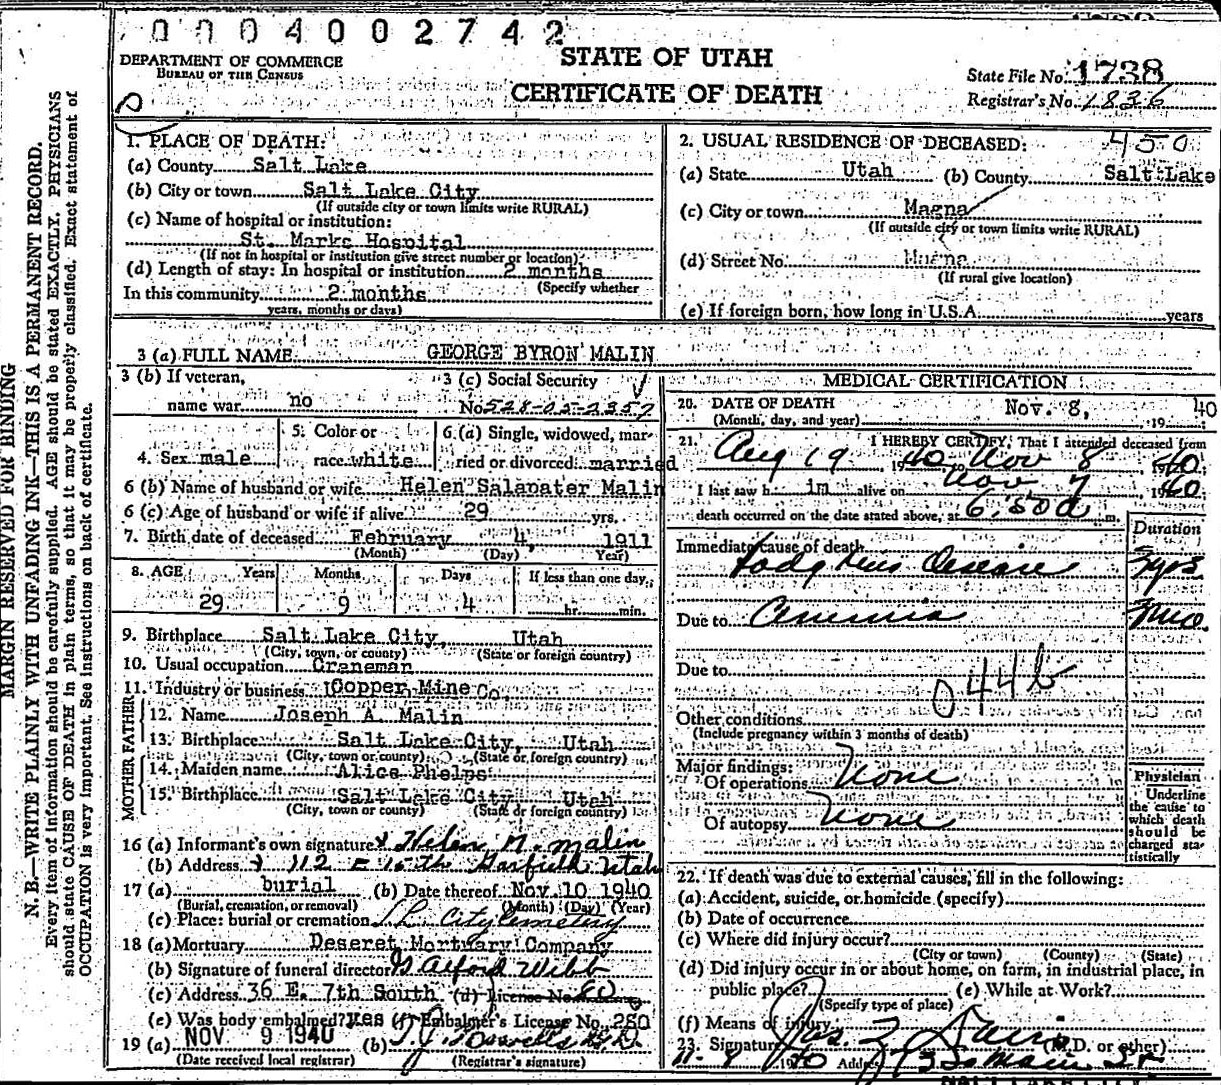 0004002742
DEPARTMENT OF COMMERCE
BUREAU OF THE CENSUS
STATE OF UTAH
CERTIFICATE OF DEATH
State File No. 1738
Registrar's No. 1836
MARGIN RESERVED FOR BINDING
N. B.—WRITE PLAINLY WITH UNFADING INK—THIS IS A PERMANENT RECORD.
Every item of information should be carefully supplied. AGE should be stated EXACTLY. PHYSICIANS
should state CAUSE OF DEATH in plain terms, so that it may be properly classified. Exact statement of
OCCUPATION is very important. See instructions on back of certificate.
1. PLACE OF DEATH:
(a) County Salt Lake
(b) City or town Salt Lake City
(If outside city or town limits write RURAL)
(c) Name of hospital or institution:
St. Marks Hospital
(If not in hospital or institution give street number or location)
(d) Length of stay: In hospital or institution 2 months
(Specify whether
In this community 2 months
years, months or days)
2. USUAL RESIDENCE OF DECEASED: 450
(a) State Utah (b) County Salt Lake
(c) City or town Magna
(If outside city or town limits write RURAL)
(d) Street No.
(If rural give location)
(e) If foreign born, how long in U.S.A. years
3 (a) FULL NAME GEORGE BYRON MALIN
3 (b) If veteran,
name war no
3 (c) Social Security
No. 528-05-2357
4. Sex male
5. Color or
race white
6. (a) Single, widowed, mar-
ried or divorced married
6 (b) Name of husband or wife Helen Salapater Malin
6 (c) Age of husband or wife if alive 29 yrs.
7. Birth date of deceased February 4, 1911
(Month) (Day) Year)
8. AGE Years Months Days If less than one day,
29 9 4 hr. min.
9. Birthplace Salt Lake City, Utah
(City, town, or county) (State or foreign country)
10. Usual occupation Craneman
11. Industry or business Copper Mine Co.
FATHER
12. Name Joseph A. Malin
13. Birthplace Salt Lake City, Utah
(City, town or county) (State or foreign country)
MOTHER
14. Maiden name Alice Phelps
15. Birthplace Salt Lake City Utah
(City, town or county) (State or foreign country)
16 (a) Informant's own signature x Helen N. Malin
(b) Address x 112 E 15th Garfield Utah
17 (a) burial (b) Date thereof Nov. 10 1940
(Burial, cremation, or removal) (Month) (Day) (Year)
(c) Place: burial or cremation S.L. City Cemetery
18 (a) Mortuary Deseret Mortuary Company
(b) Signature of funeral director Webb
(c) Address 36 E. 7th South (d) License No. 60
(e) Was body embalmed? yes (f) Embalmer's License No. 250
19 (a) NOV 9 1940 (b)
(Date received local registrar) (Registrar's signature)
MEDICAL CERTIFICATION
20. DATE OF DEATH Nov. 8, 1940
(Month, day, and year)
21. I HEREBY CERTIFY, That I attended deceased from
Aug 19 1940 to Nov 8 1940
I last saw him alive on Nov 7 1940
death occurred on the date stated above, at 6:50 a m.
Duration
Immediate cause of death
Hodgkins Disease 2 yrs
Due to Anemia mo.
Due to
044b
Other conditions
(Include pregnancy within 3 months of death)
Major findings:
Of operations None
Of autopsy None
Physician
Underline
the cause to
which death
should be
charged sta-
tistically
22. If death was due to external causes, fill in the following:
(a) Accident, suicide, or homicide (specify)
(b) Date of occurrence
(c) Where did injury occur?
(City or town) (County) (State)
(d) Did injury occur in or about home, on farm, in industrial place, in
public place? (e) While at Work?
(Specify type of place)
(f) Means of injury
23. Signature Jos. (M.D. or other)
Address Main St